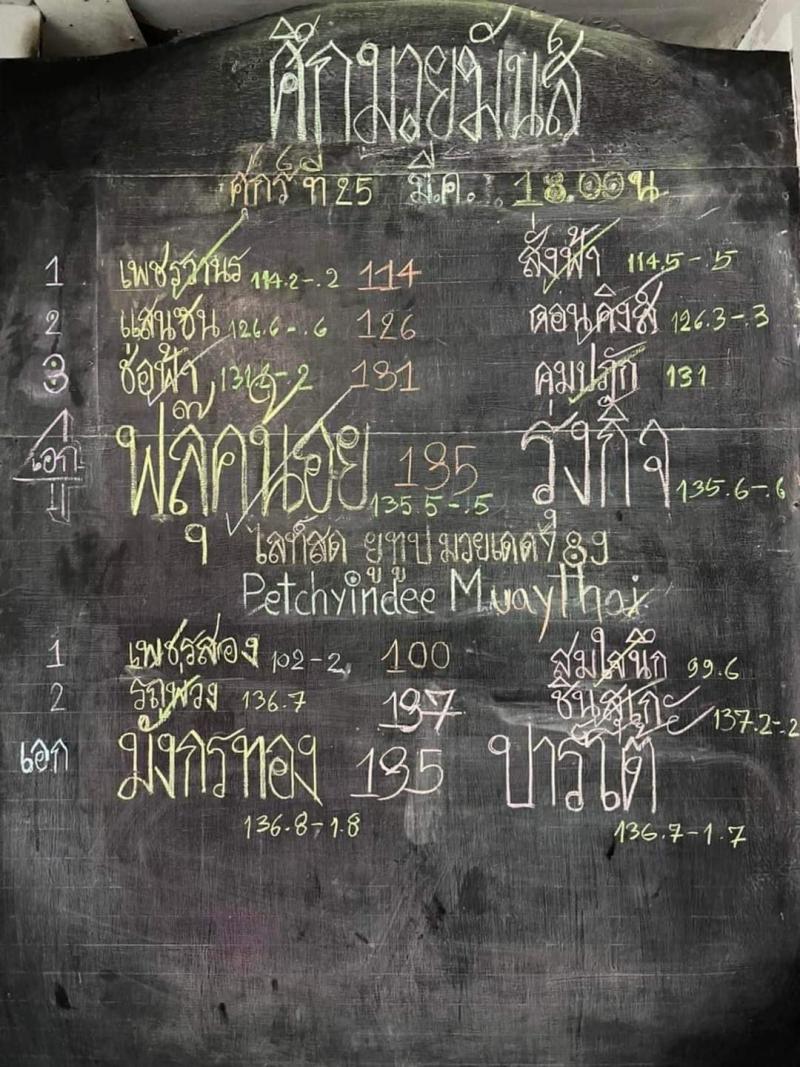 ศึกมวยมันส์
ศุกร์ ที่ 25 มี.ค. 18.00 น
1 เพชรวานร 114.2-.2 114 สั่งฟ้า 114.5-.5
2 แสนชน 126.6-.6 126 ดอนคิงส์ 126.3-.3
3 ช่อฟ้า 131.2-.2 131 คมปฏัก 131
เอก พลุ๊คน้อย 135.5-.5 135 รุ่งกิจ 135.6-.6
ๆ ไลท์สด ยูทูป มวยเด็ด 789
Petchyindee MuayThai
1 เพชรสอง 102-2 100 สมใจนึก 99.6
2 รถพ่วง 136.7 137 ชินสุเกะ 137.2-.2
เอก มังกรทอง 135 ปาร์โต๊
136.8-1.8 136.7-1.7